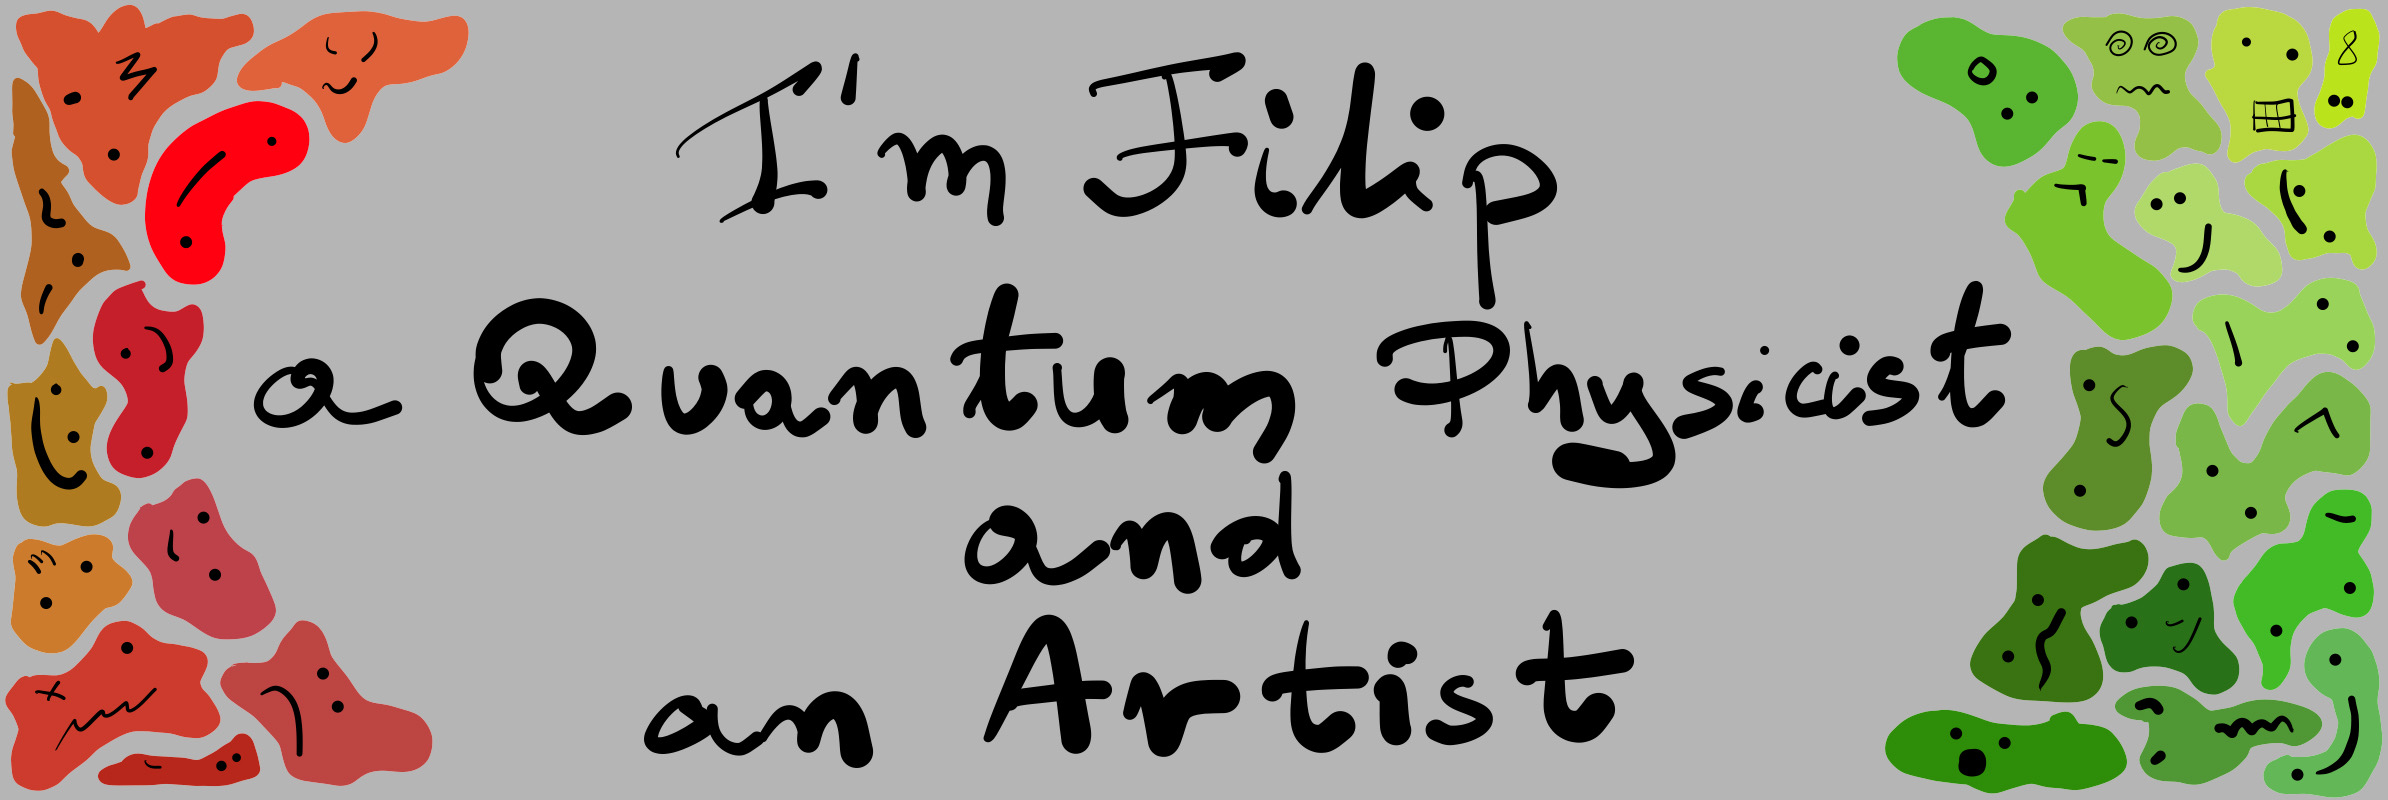 I'm Filip
a Quantum Physicist
and
an Artist